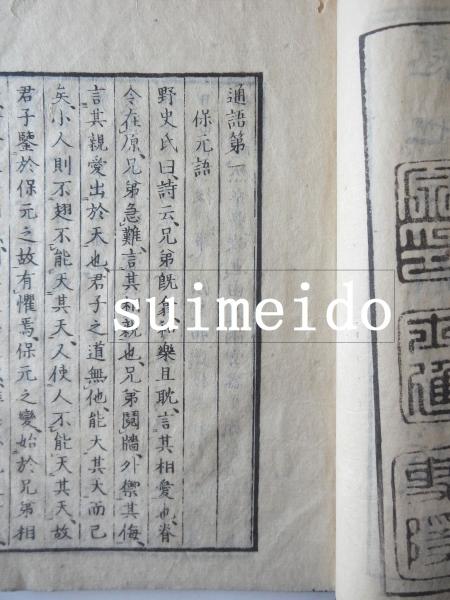 通語第一
保元語
野史氏曰詩云兄弟既翕和樂且耽言其相愛也脊
令在原兄弟急難言其相親也兄弟鬩牆外禦其侮
言其親愛出於天也君子之道無他能大其天而已
矣小人則不翅不能天其天又使人不能天其天故
君子鑒於保元之故有懼焉保元之變始於兄弟相
suimeido